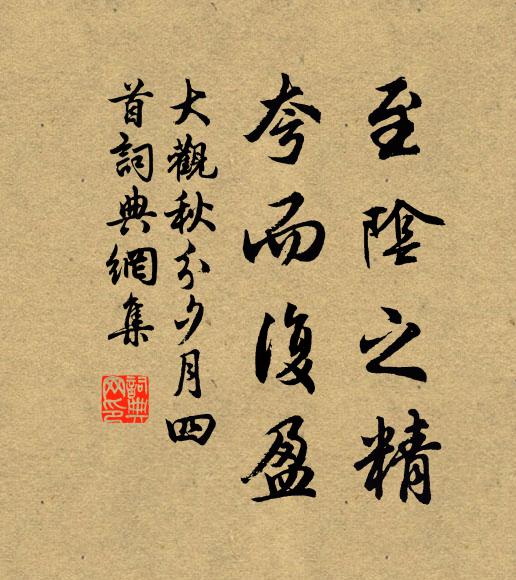 至陰之精
夸而復盈
大觀秋分夕月四
首詞典網集
詞典
网印